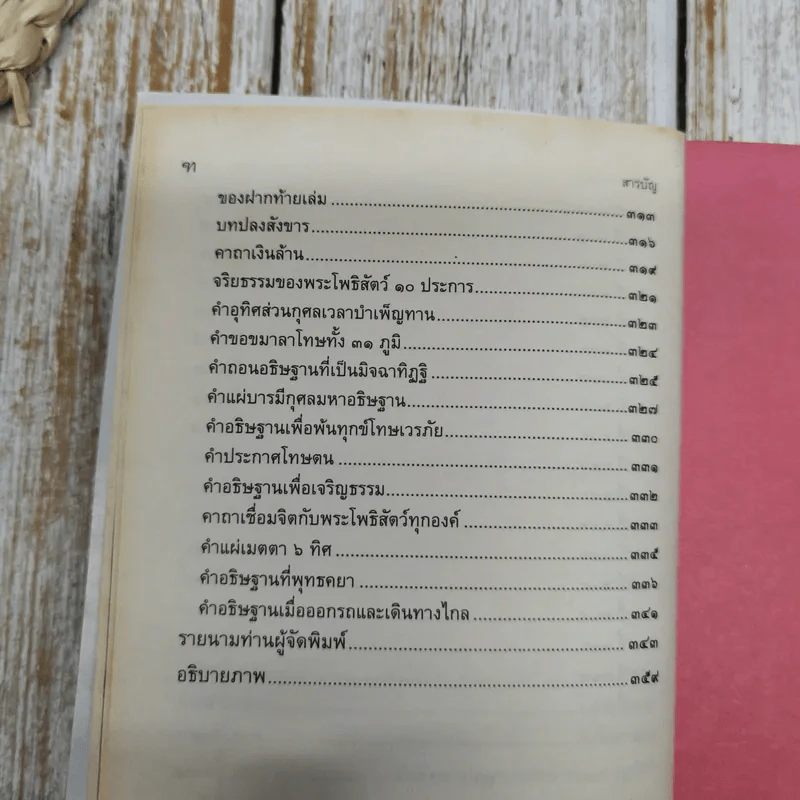 ฑ
สารบัญ
ของฝากท้ายเล่ม ๓๑๓
บทปลงสังขาร ๓๑๖
คาถาเงินล้าน ๓๑๙
จริยธรรมของพระโพธิสัตว์ ๑๐ ประการ ๓๒๑
คำอุทิศส่วนกุศลเวลาบำเพ็ญทาน ๓๒๓
คำขอขมาลาโทษทั้ง ๓๑ ภูมิ ๓๒๔
คำถอนอธิษฐานที่เป็นมิจฉาทิฏฐิ ๓๒๕
คำแผ่บารมีกุศลมหาอธิษฐาน ๓๒๗
คำอธิษฐานเพื่อพ้นทุกข์โทษเวรภัย ๓๓๐
คำประกาศโทษตน ๓๓๑
คำอธิษฐานเพื่อเจริญธรรม ๓๓๒
คาถาเชื่อมจิตกับพระโพธิสัตว์ทุกองค์ ๓๓๓
คำแผ่เมตตา ๖ ทิศ ๓๓๕
คำอธิษฐานที่พุทธคยา ๓๓๖
คำอธิษฐานเมื่อออกรถและเดินทางไกล ๓๔๑
รายนามท่านผู้จัดพิมพ์ ๓๔๓
อธิบายภาพ ๓๕๙